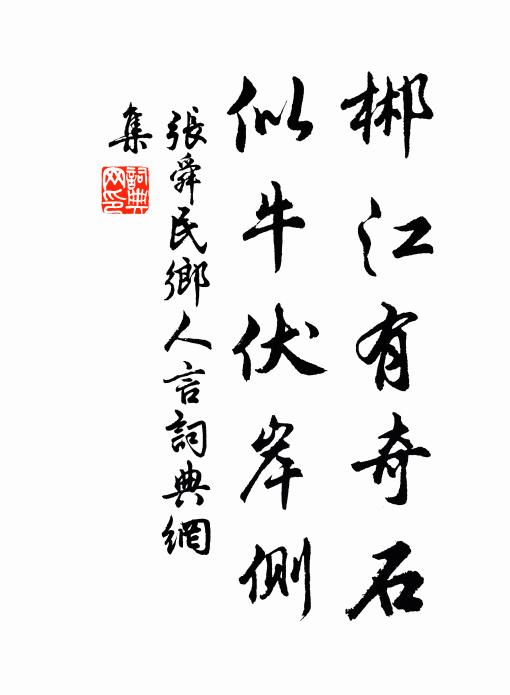 郴江有奇石
似牛伏岸側
張舜民鄉人言詞典網
集
詞典網印